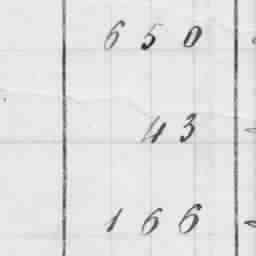 650
43
166